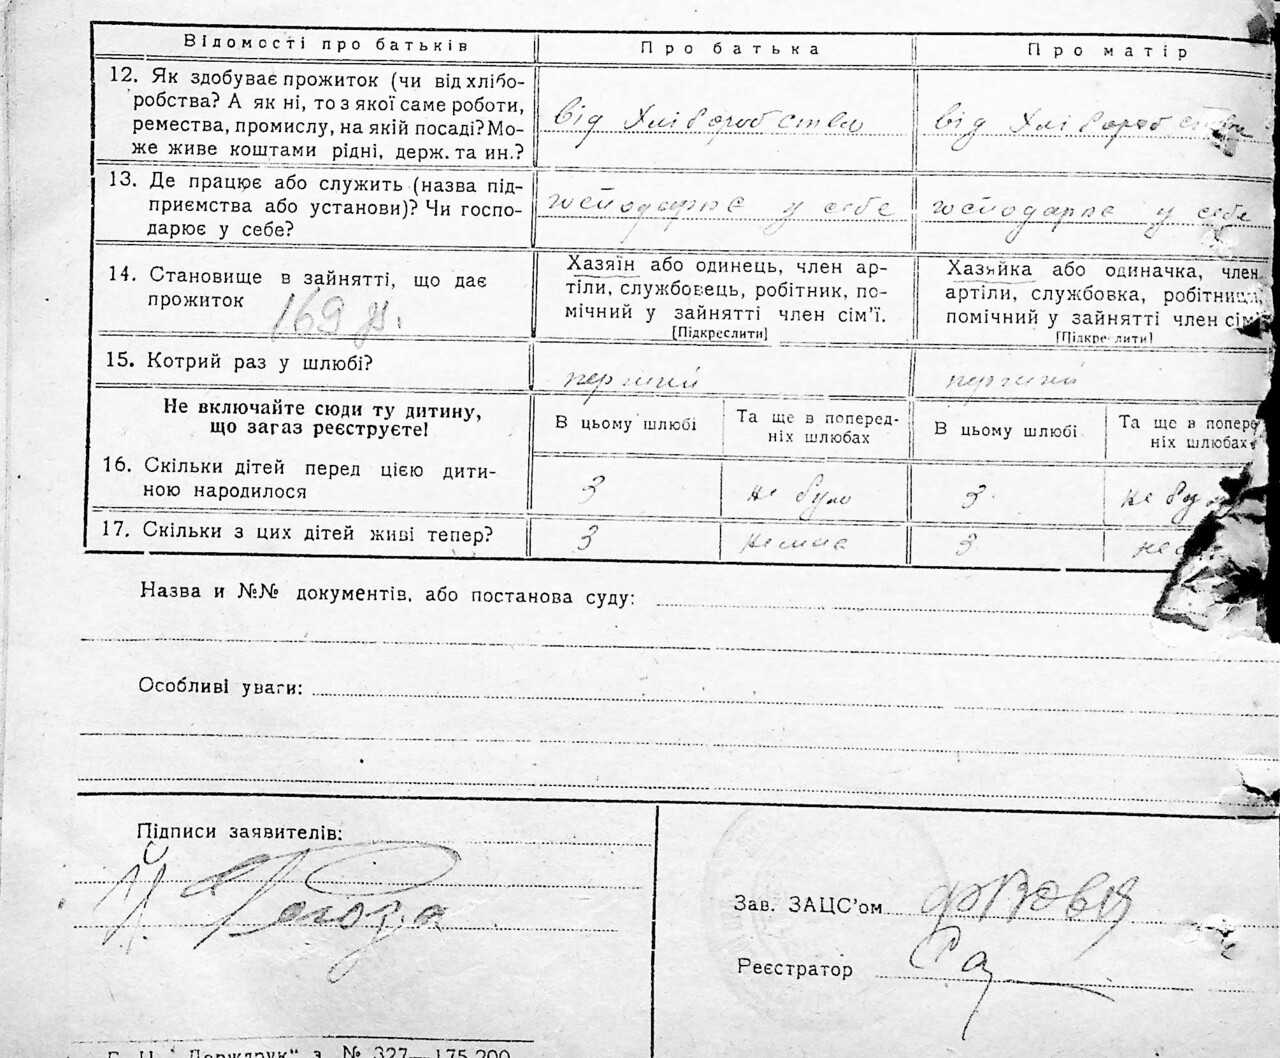 Відомості про батьків Про батька Про матір
12. Як здобуває прожиток (чи від хлібо-
робства? А як ні, то з якої саме роботи,
ремества, промислу, на якій посаді? Мо-
же живе коштами рідні, держ. та ин.?
від хліборобства від хліборобства
13. Де працює або служить (назва під-
приємства або установи)? Чи госпо-
дарює у себе?
господарює у себе господарює у себе
14. Становище в зайнятті, що дає
прожиток 169 р.
Хазяїн або одинець, член ар-
тіли, службовець, робітник, по-
мічний у зайнятті член сім'ї.
[Підкреслити]
Хазяйка або одиначка, член
артіли, службовка, робітниця,
помічний у зайнятті член сім'ї
[Підкреслити]
15. Котрий раз у шлюбі? перший перший
Не включайте сюди ту дитину,
що загаз реєструєте!
В цьому шлюбі
Та ще в поперед-
ніх шлюбах
В цьому шлюбі
Та ще в попере
ніх шлюбах
16. Скільки дітей перед цією дити-
ною народилося
3 не було 3 не було
17. Скільки з цих дітей живі тепер? 3 немає 3
Назва и №№ документів, або постанова суду:
Особливі уваги:
Підписи заявителів:
Й. Рогоза
Зав. ЗАЦС'ом
Реєстратор
"Держдрук" з. № 327—175.200